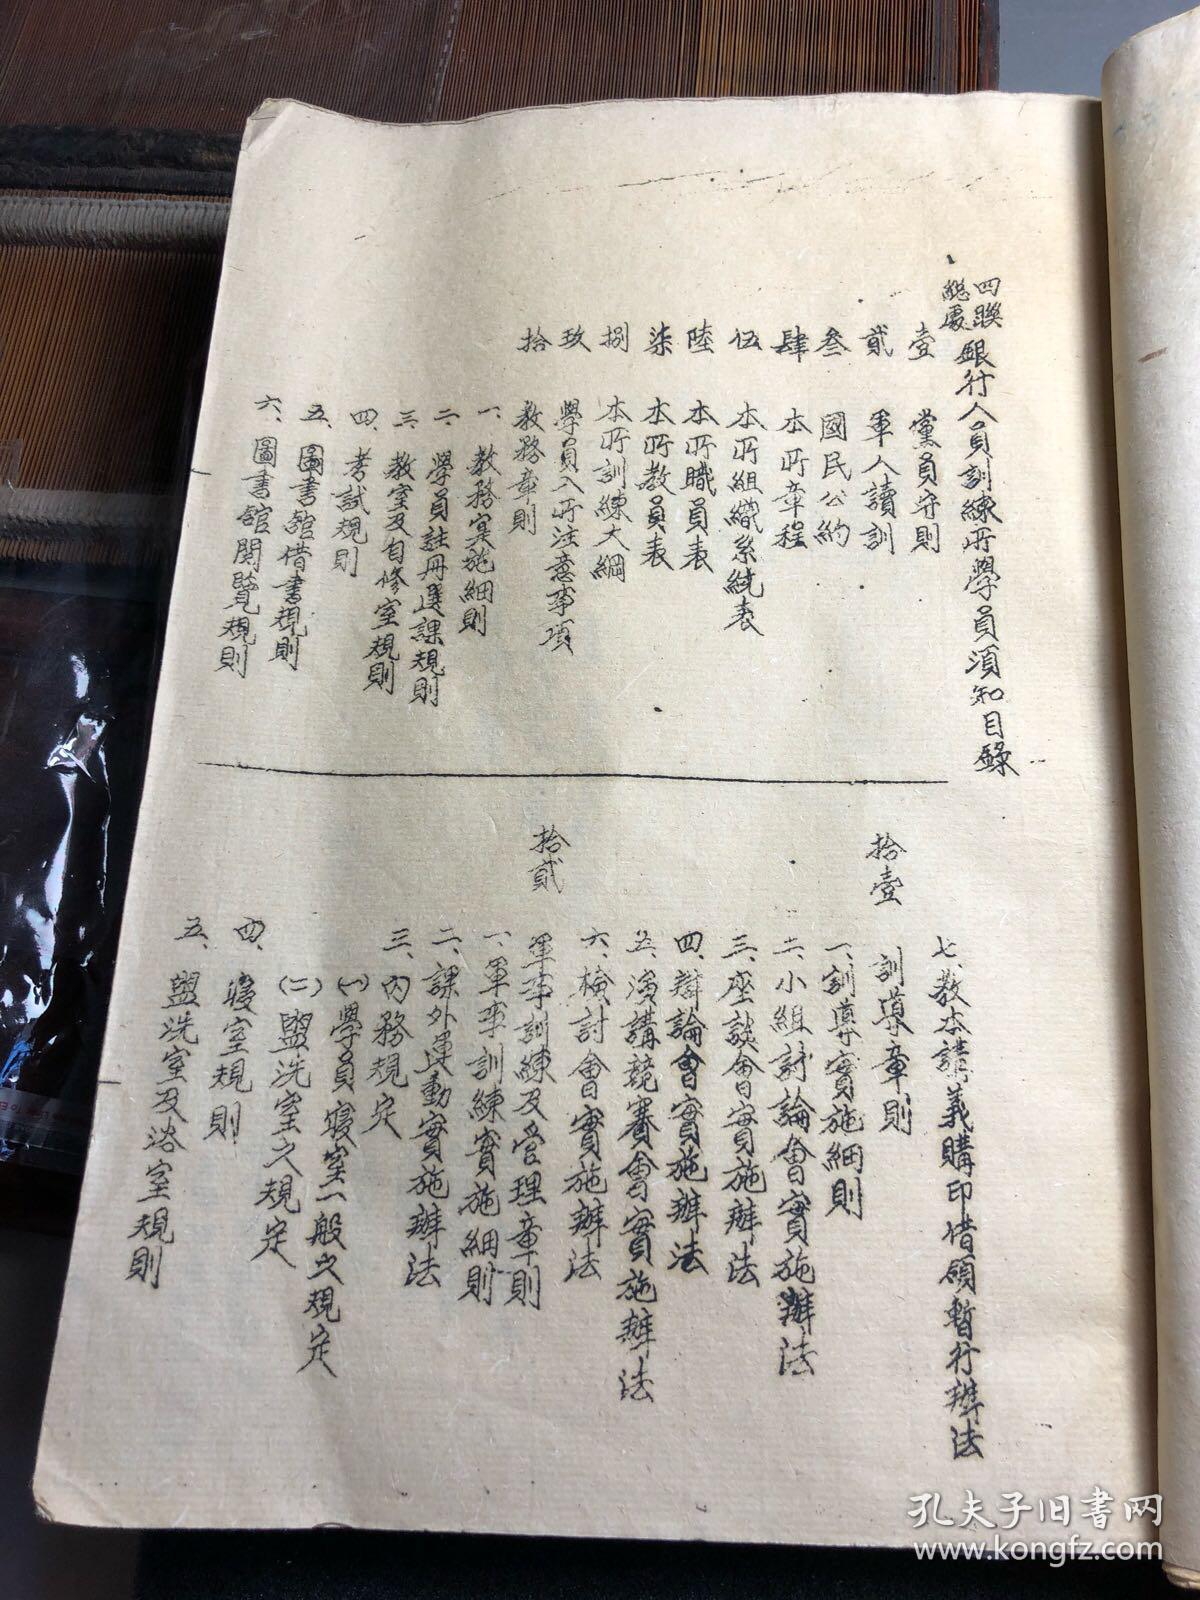 四聯總處銀行人員訓練所學員須知目錄
壹 黨員守則
貳 軍人讀訓
叁 國民公約
肆 本所章程
伍 本所組織系統表
陸 本所職員表
柒 本所教員表
捌 本所訓練大綱
玖 學員入所注意事項
拾 教務章則
一、教務實施細則
二、學員註冊選課規則
三、教室及自修室規則
四、考試規則
五、圖書舘借書規則
六、圖書舘閱覽規則
七、教本講義購印借領暫行辦法
拾壹 訓導章則
一、訓導實施細則
二、小組討論會實施辦法
三、座談會實施辦法
四、辯論會實施辦法
五、演講競賽會實施辦法
六、檢討會實施辦法
拾貳 軍事訓練及管理章則
一、軍事訓練實施細則
二、課外運動實施辦法
三、內務規定
(一)學員寢室一般之規定
(二)盥洗室之規定
四、寢室規則
五、盥洗室及浴室規則
孔夫子旧书网
www.kongfz.com